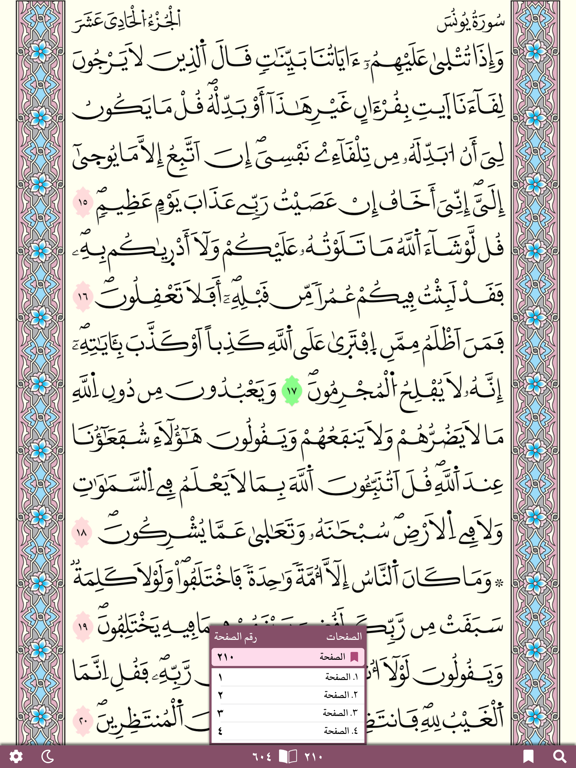 سُورَةُ يُونُسَ
اَلْجُزْءُ الْحَادِي عَشَرَ
وَإِذَا تُتْلَىٰ عَلَيْهِمُۥٓ ءَايَاتُنَا بَيِّنَٰتٖ قَالَ اَلذِينَ لَا يَرْجُونَ
لِقَآءَنَا اَيتِ بِقُرْءَانٍ غَيْرِ هَٰذَآ أَوْ بَدِّلْهُۖ قُلْ مَا يَكُونُ
لِيَ أَنُ ا۟بَدِّلَهُۥ مِن تِلْقَآءِےْ نَفْسِيَۖ إِنَ اَتَّبِعُ إِلَّا مَا يُوحَىٰٓ
إِلَيَّۖ إِنِّيَ أَخَافُ إِنْ عَصَيْتُ رَبِّے عَذَابَ يَوْمٍ عَظِيمٖۖ ١٥
قُل لَّوْ شَآءَ اَللَّهُ مَا تَلَوْتُهُۥ عَلَيْكُمْ وَلَآ أَدْرِيٰكُم بِهِۦۖ
فَقَدْ لَبِثْتُ فِيكُمْ عُمُراٗ مِّن قَبْلِهِۦٓۖ أَفَلَا تَعْقِلُونَۖ ١٦
فَمَنَ اَظْلَمُ مِمَّنِ اِفْتَرَىٰ عَلَى اَللَّهِ كَذِباً اَوْ كَذَّبَ بِـَٔايَٰتِهِۦٓۖ
إِنَّهُۥ لَا يُفْلِحُ اُلْمُجْرِمُونَۖ ١٧ وَيَعْبُدُونَ مِن دُونِ اِللَّهِ
مَا لَا يَضُرُّهُمْ وَلَا يَنفَعُهُمْ وَيَقُولُونَ هَٰٓؤُلَآءِ شُفَعَٰٓؤُنَا
عِندَ اَللَّهِۖ قُلَ اَتُنَبِّـُٔونَ اَللَّهَ بِمَا لَا يَعْلَمُ فِے اِلسَّمَٰوَٰتِ
وَلَا فِے اِلْأَرْضِۖ سُبْحَٰنَهُۥ وَتَعَٰلَىٰ عَمَّا يُشْرِكُونَۖ ١٨
۞ وَمَا كَانَ اَلنَّاسُ إِلَّآ أُمَّةٗ وَٰحِدَةٗ فَاخْتَلَفُواْۖ وَلَوْلَا كَلِمَةٞ
سَبَقَتْ مِن رَّبِّكَ فِيهِ يَخْتَلِفُونَۖ ١٩
وَيَقُولُونَ لَوْلَآ رَّبِّهِۦۖ فَقُلِ اِنَّمَا
اَلْغَيْبُ لِلهِ فَانتَظِرُوٓاْ اَلْمُنتَظِرِينَۖ ٢٠
الصفحات رقم الصفحة
الصفحة ٢١٠
١. الصفحة ١
٢. الصفحة ٢
٣. الصفحة ٣
٤. الصفحة ٤
٢١٠ ٦٠٤